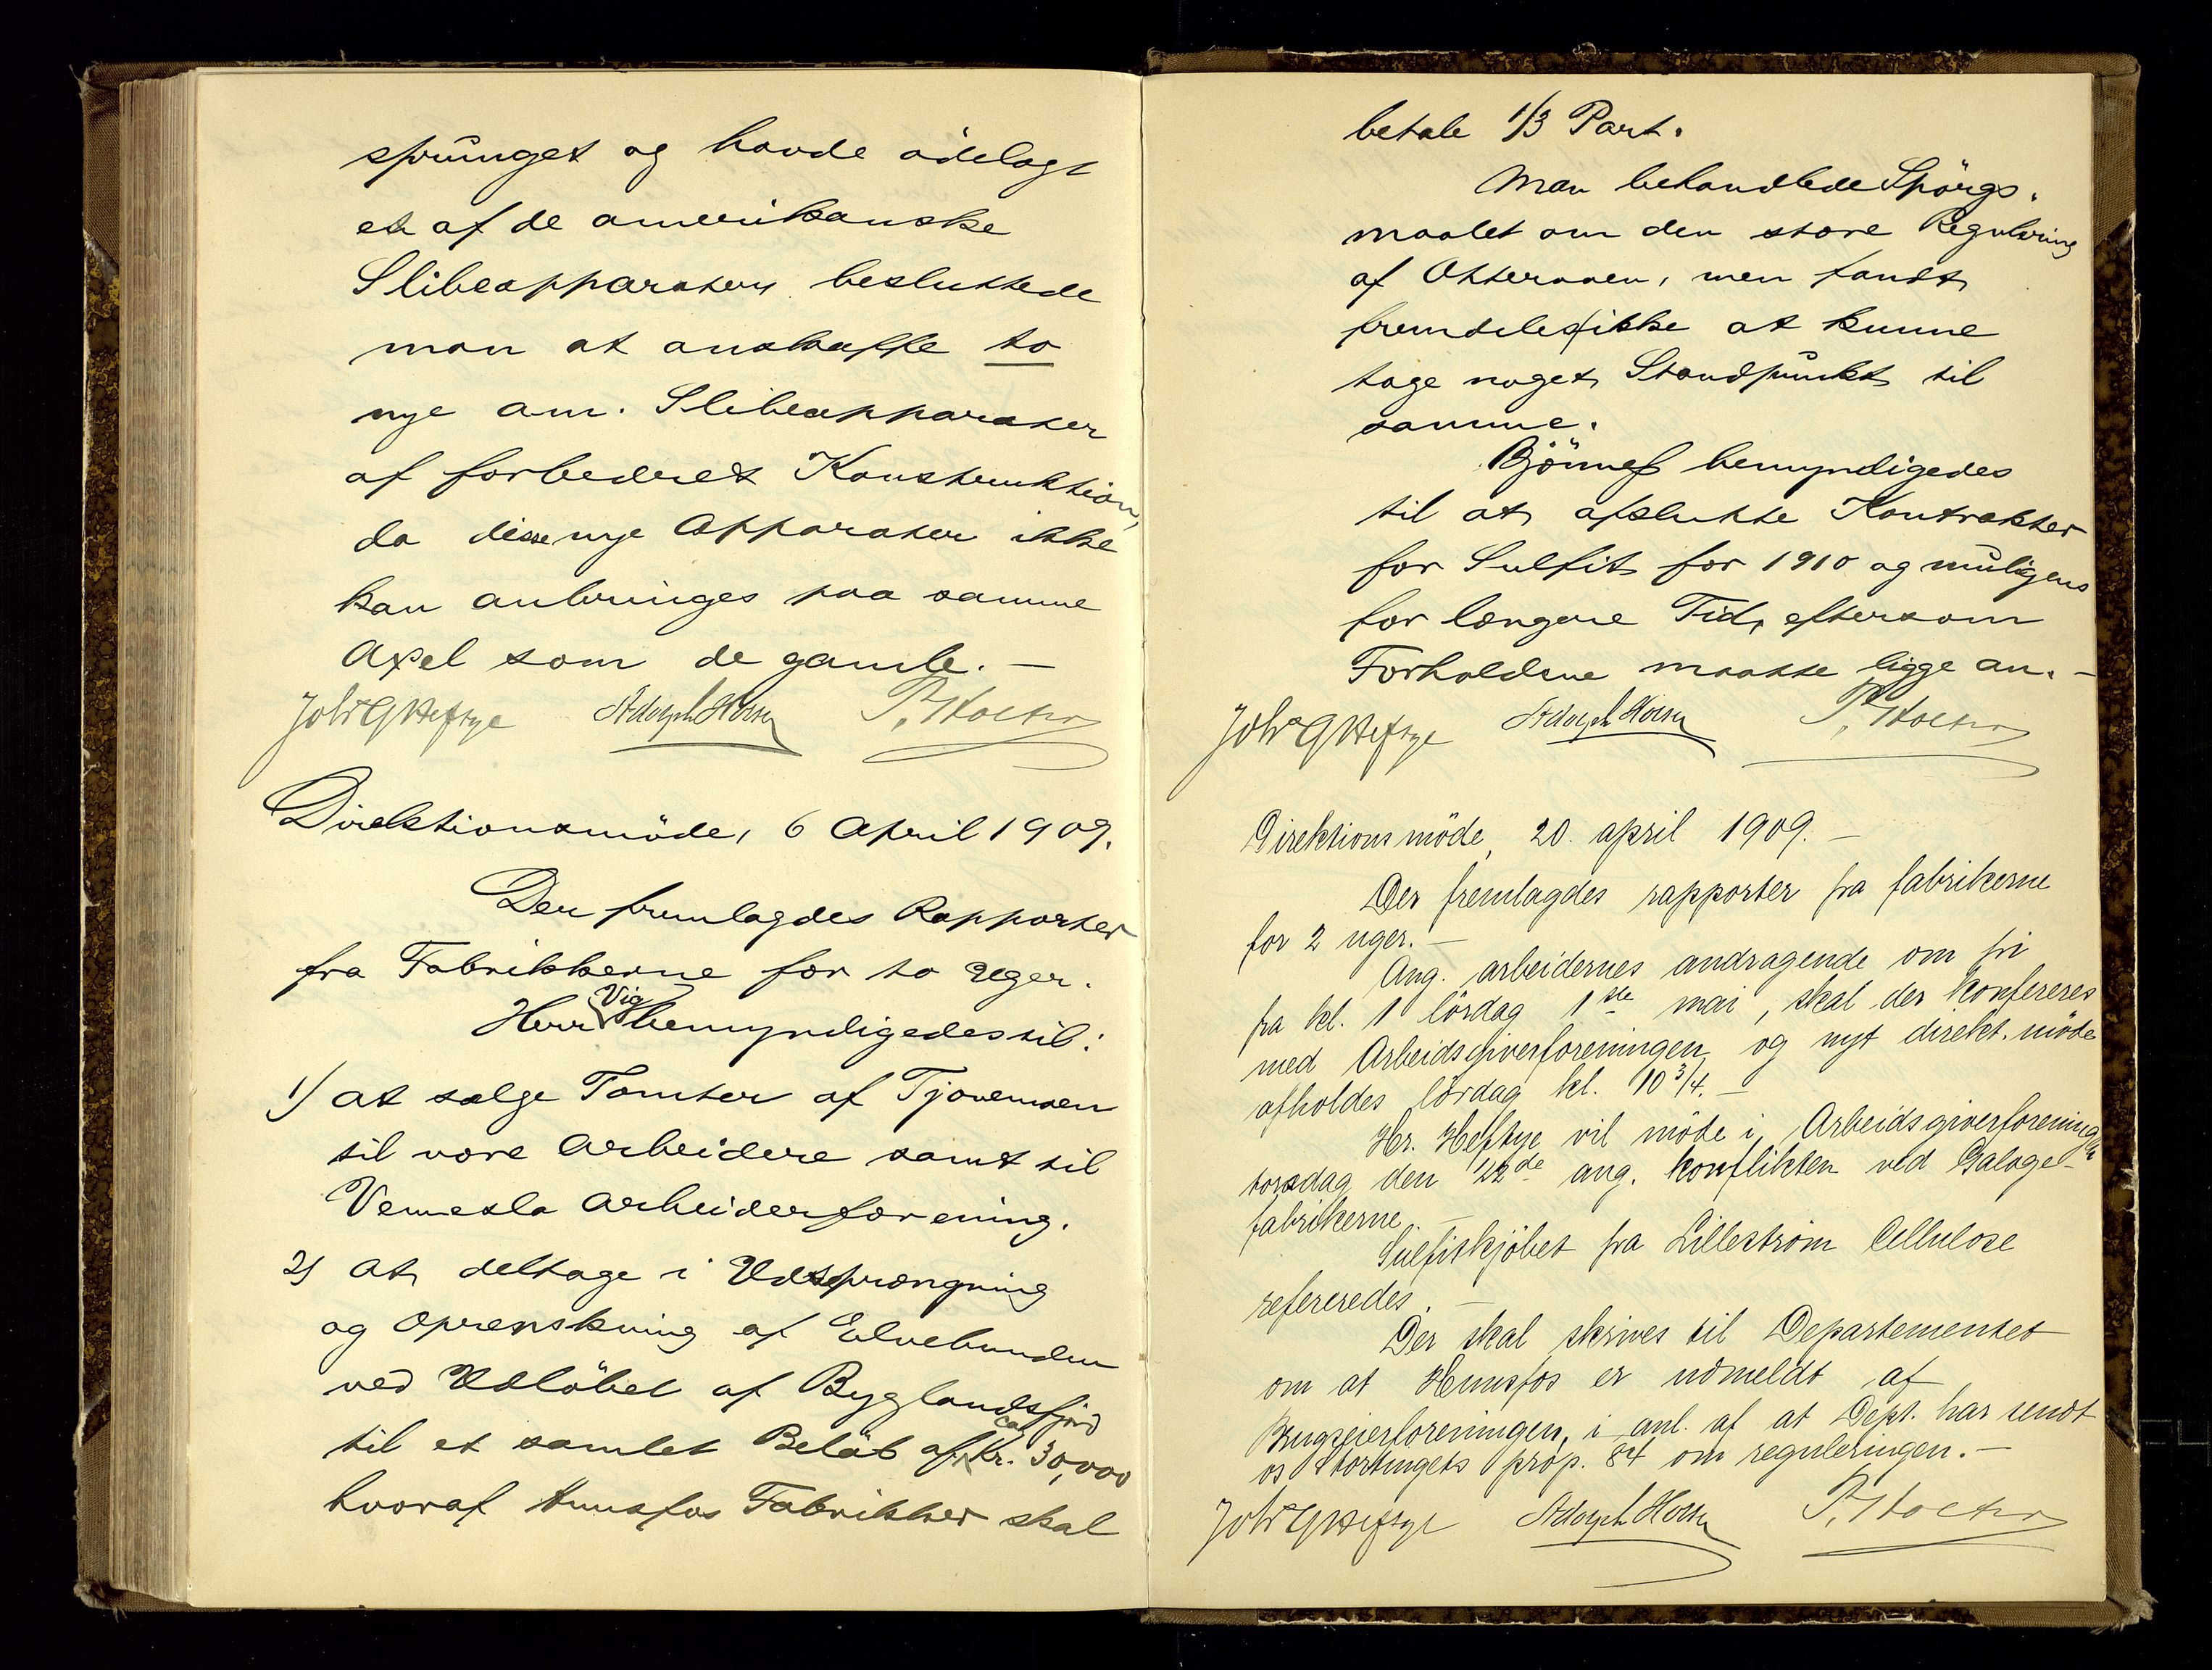 sprunget og havde ödelagt
et af de amerikanske
Slibeapparater, besluttede
man at anskaffe to
nye am. Slibeapparater
af forbedret Konstruktion,
da disse nye Apparater ikke
kan anbringes paa samme
Axel som de gamle. —
Joh G Heftye Adolph Hoern
Direktionsmöde, 6 April 1909.
Der fremlagdes Rapporter
fra Fabrikkerne for to Uger.
Herr Vig bemyndigedes til:
1) at sælge Tomter af Tjovenmoen
til vore Arbeidere samt til
Vennesla Arbeiderforening.
2) At deltage i Udsprængning
og Oprenskning af Elvebunden
ved Udlöbet af Byglandsfjord
til et samlet Belöb af ca Kr. 30,000
hvoraf Hunsfos Fabrikker skal
betale 1/3 Part.
Man behandlede Spörgs-
maalet om den store Regulering
af Otteraaen, men fandt
fremdeles ikke at kunne
tage noget Standpunkt til
samme.
Bjönnes bemyndigedes
til at afslutte Kontrakter
for Sulfit for 1910 og muligens
for længere Tid, eftersom
Forholdene maatte ligge an. —
Joh G Heftye Adolph Hoern
Direktionsmöde, 20. april 1909. —
Der fremlagdes rapporter fra fabrikerne
for 2 uger. —
Ang. arbeidernes andragende om fri
fra kl. 1 lördag 1ste mai, skal der konfereres
med Arbeidsgiverforeningen, og nyt direkt. möde
afholdes lördag kl. 10 3/4. —
Hr. Heftye vil möde i Arbeidsgiverforeningen
torsdag den 22de ang. konflikten ved Galoge-
fabrikerne. —
Sulfitkjöbet fra Lilleström Cellulose
refereredes. —
Der skal skrives til Departementet
om at Hunsfos er udmeldt af
Brugseierforeningen, i anl. af at Dept. har sendt
os Stortingets prop. 84 om reguleringen. —
Joh G Heftye Adolph Hoern